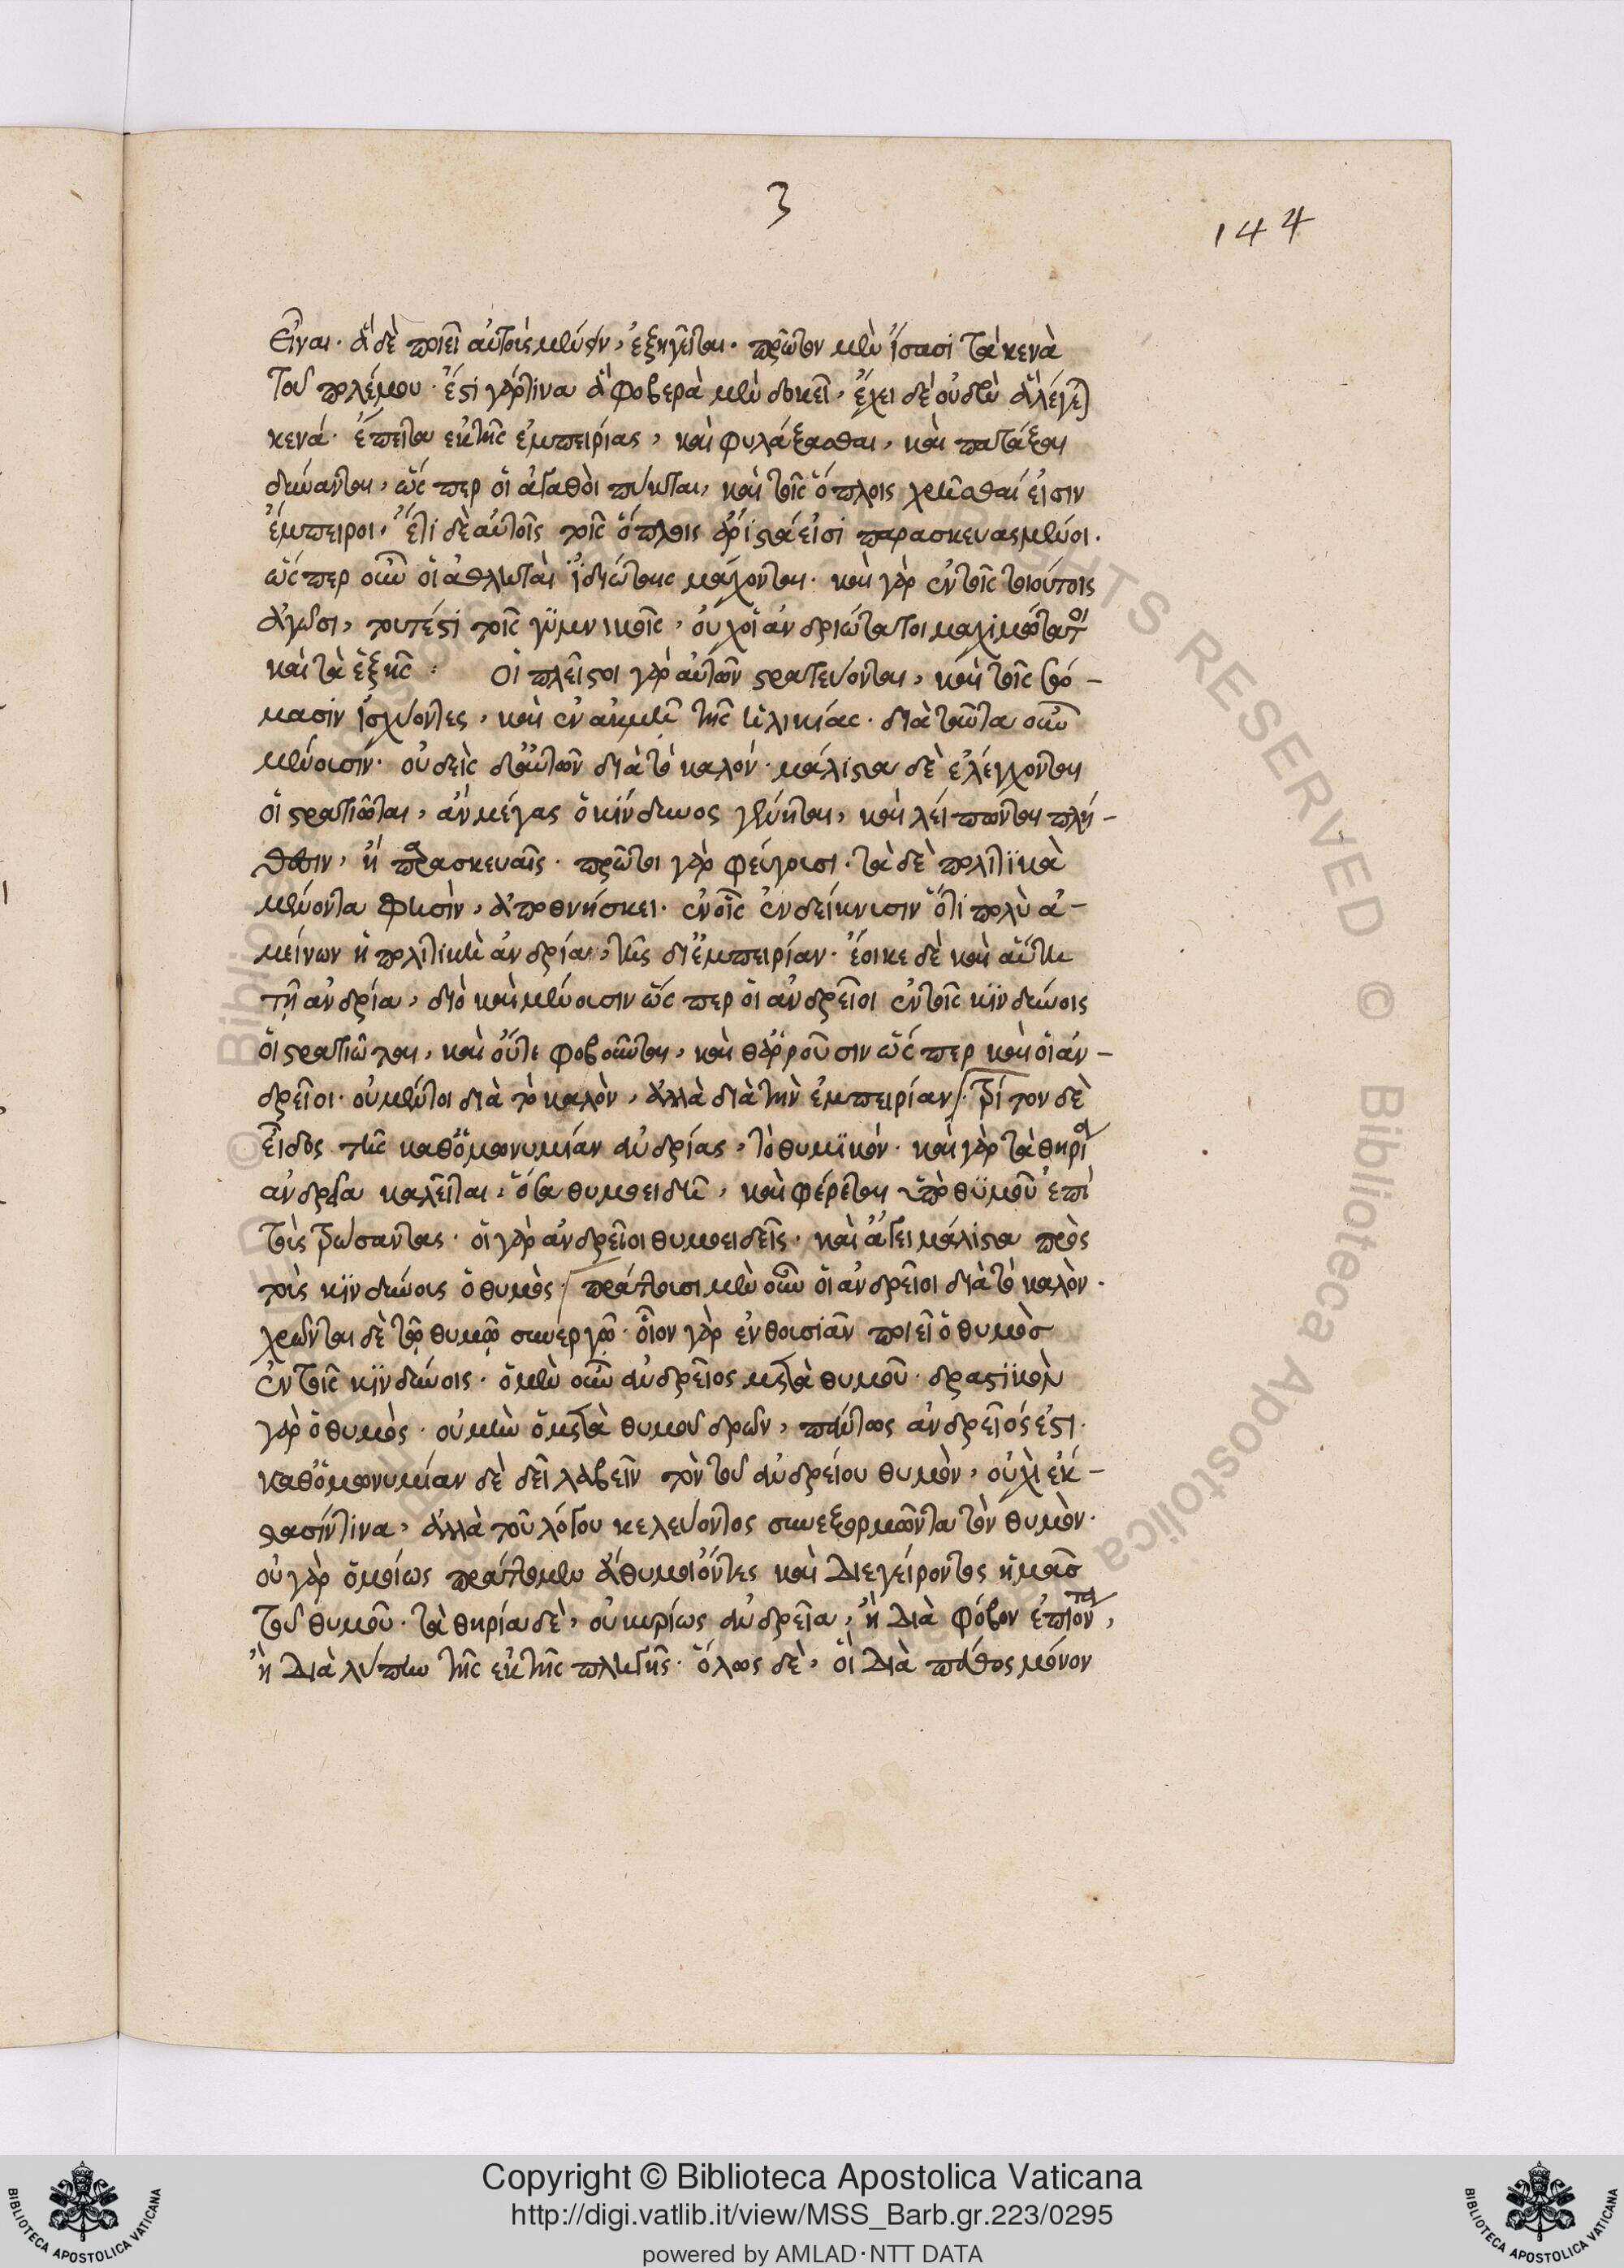 3
144
εἶναι. ἃ δὲ ποιεῖ αὐτοὺς μένειν, ἐξηγεῖται. πρῶτον μὲν ἴσασι τὰ κενὰ
τοῦ πολέμου. ἔστι γάρ τινα ἃ φοβερὰ μὲν δοκεῖ, ἔχει δὲ οὐδὲν ἃ λέγει
κενά. ἔπειτα ἐκ τῆς ἐμπειρίας, καὶ φυλάξασθαι, καὶ πατάξαι
δύνανται, ὥς περ οἱ ἀγαθοὶ πύκται, καὶ τοῖς ὅπλοις χρῆσθαί εἰσιν
ἔμπειροι. ἔτι δὲ αὐτοῖς τοῖς ὅπλοις ἄριστά εἰσι παρασκευασμένοι.
ὥς περ οὖν οἱ ἀθληταὶ ἰδιώταις μάχονται. καὶ γὰρ ἐν τοῖς τοιούτοις
ἀγῶσι, τουτέστι τοῖς γυμνικοῖς, οὐχ οἱ ἀνδριώτατοι μαχιμώτατοι
καὶ τὰ ἑξῆς: Οἱ πλεῖστοι γὰρ αὐτῶν στρατεύονται, καὶ τοῖς σώ-
μασιν ἰσχύοντες, καὶ ἐν ἀκμῇ τῆς ἡλικίας. διὰ ταῦτα οὖν
μένουσιν. οὐδεὶς δ' αὐτῶν διὰ τὸ καλόν. μάλιστα δὲ ἐλέγχονται
οἱ στρατιῶται, ἂν μέγας ὁ κίνδυνος γένηται, καὶ λείπωνται πλή-
θεσιν, ἢ παρασκευαῖς. πρῶτοι γὰρ φεύγουσι. τὰ δὲ πολιτικὰ
μένοντα φησὶν, ἀποθνήσκει. ἐν οἷς ἐνδείκνυσιν ὅτι πολὺ ἀ-
μείνων ἡ πολιτικὴ ἀνδρία, τῆς δι' ἐμπειρίαν. ἔοικε δὲ καὶ αὕτη
τῇ ἀνδρία, διὸ καὶ μένουσιν ὥς περ οἱ ἀνδρεῖοι ἐν τοῖς κινδύνοις
οἱ στρατιῶται, καὶ οὔτε φοβοῦνται, καὶ θαρροῦσιν ὥς περ καὶ οἱ ἀν-
δρεῖοι. οὐ μέντοι διὰ τὸ καλὸν, ἀλλὰ διὰ τὴν ἐμπειρίαν. τρίτον δὲ
εἶδος τῆς καθ' ὁμωνυμίαν ἀνδρίας, τὸ θυμικόν. καὶ γὰρ τὰ θηρία
ἀνδρεῖα καλεῖται, ὅσα θυμοειδῆ, καὶ φέρεται ὑπὸ θυμοῦ ἐπὶ
τοὺς τρώσαντας. οἱ γὰρ ἀνδρεῖοι θυμοειδεῖς. καὶ ἄγει μάλιστα πρὸς
τοὺς κινδύνους ὁ θυμὸς. πράττουσι μὲν οὖν οἱ ἀνδρεῖοι διὰ τὸ καλὸν.
χρῶνται δὲ τῷ θυμῷ συνεργῷ. οἷον γὰρ ἐνθουσιᾶν ποιεῖ ὁ θυμὸς
ἐν τοῖς κινδύνοις. ὁ μὲν οὖν ἀνδρεῖος μετὰ θυμοῦ. δραστικὸν
γὰρ ὁ θυμὸς. οὐ μὴν ὁ μετὰ θυμοῦ δρῶν, πάντως ἀνδρεῖός ἐστι.
καθ' ὁμωνυμίαν δὲ δεῖ λαβεῖν τὸν τοῦ ἀνδρείου θυμὸν, οὐχὶ ἔκ-
στασίν τινα, ἀλλὰ τοῦ λόγου κελεύοντος συνεξορμῶντα τὸν θυμὸν.
οὐ γὰρ ὁμοίως πράττομεν ἄθυμοι ὄντες καὶ διεγείροντος ἡμᾶς
τοῦ θυμοῦ. τὰ θηρία δὲ, οὐ κυρίως ἀνδρεῖα, ἢ διὰ φόβον
ἢ διὰ λύπην τῆς ἐκ τῆς πληγῆς. ὅλως δὲ, οἱ διὰ πάθος μόνον
Copyright © Biblioteca Apostolica Vaticana
http://digi.vatlib.it/view/MSS_Barb.gr.223/0295
powered by AMLAD·NTT DATA